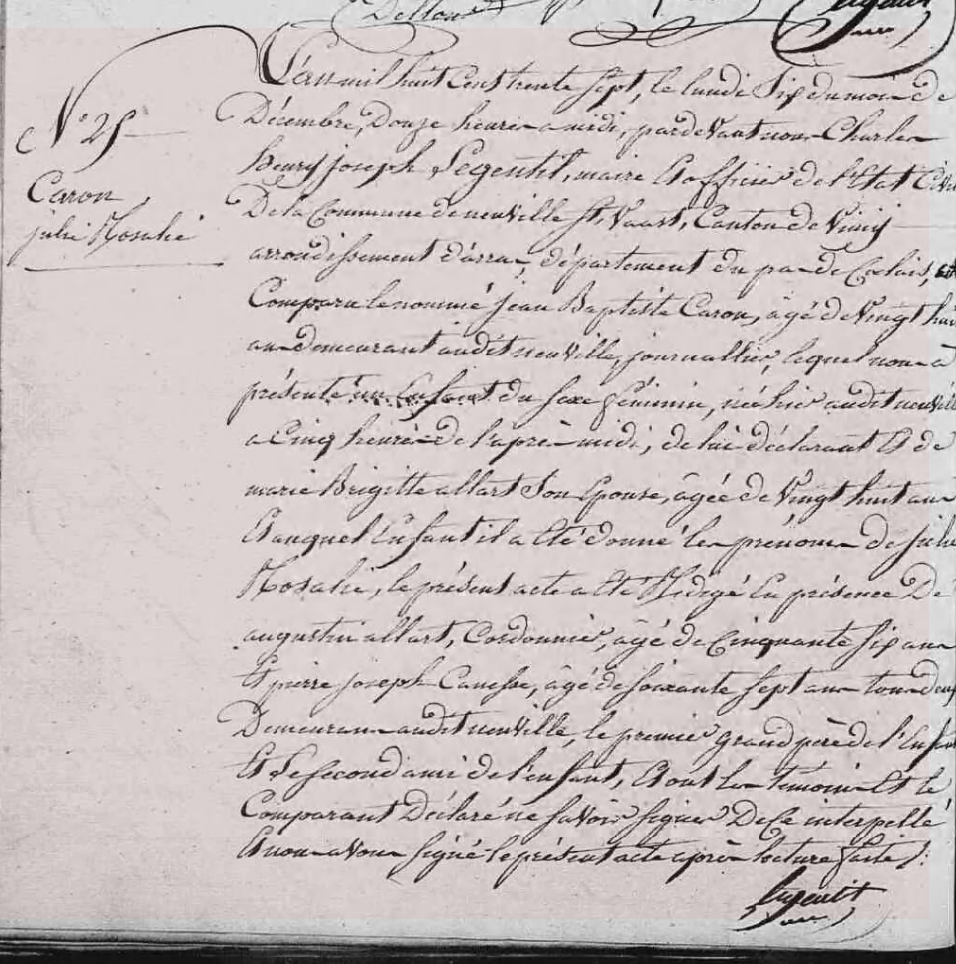 N° 25
Caron
julie Rosalie
L'an mil huit cens trente sept, le lundi six du mois de
Décembre, Douze heures a midi, pardevant nous Charles
henry joseph Legentil, maire Et officier de l'Etat Civil
De la Commune de neuville St Vaast, Canton de Vimy
arrondissement d'arras, département du pas de Calais, Est
Comparu le nommé jean Baptiste Caron, âgé de Vingt huit
ans demeurant audit neuville, journallier, lequel nous a
présenté un Enfant du sexe féminin, née hier audit neuville
a Cinq heures de l'après midi, de lui déclarant Et de
marie Brigitte allart Son Epouse, âgée de Vingt huit ans
Et auquel Enfant il a Eté donné les prénoms de julie
Rosalie, le présent acte a Eté Rédigé En présence De
augustin allart, Cordonnier, âgé de Cinquante six ans
Et pierre joseph Canesse, âgé de soixante sept ans tous deux
Demeurans audit neuville, le premier grand père de l'Enfant
Et le second ami de l'enfant, Et ont les témoins Et le
Comparant Déclaré ne savoir signer De Ce interpellé
Et nous avons signé le présent acte après lecture faite
Legentil